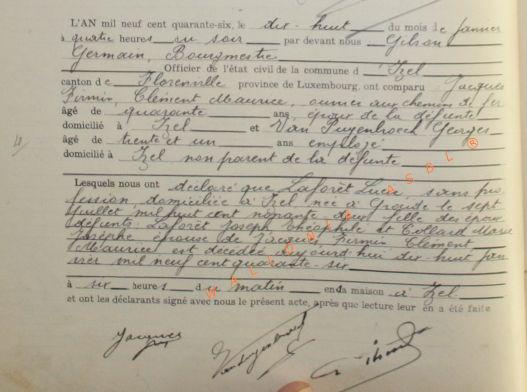 L'AN mil neuf cent quarante-six, le dix-huit du mois de janvier
à quatre heures du soir par devant nous Gilson
Germain, Bourgmestre
Officier de l'état civil de la commune d'Izel
canton de Florenville province de Luxembourg, ont comparu Jacques
Firmin, Clément Maurice, ouvrier aux chemin de fer
âgé de quarante ans, époux de la défunte
domicilié à Izel et Van Puyenbroeck Georges
âgé de trente et un ans employé
domicilié à Izel non parent de la défunte
Lesquels nous ont déclaré que Laforêt Lucie, sans pro
fession, domiciliée à Izel, née à le sept
juillet mil huit cent nonante deux fille des époux
défunts Laforêt Joseph Théophile et Collard Marie
Josèphe épouse de Jacques, Firmin Clément
Maurice, est décédée aujourd'hui dix-huit jan
vier mil neuf cent quarante-six
à six heures du matin en sa maison à Izel
et ont les déclarants signé avec nous le présent acte, après que lecture leur en a été faite
Jacques
WALLONIA ASBL ®